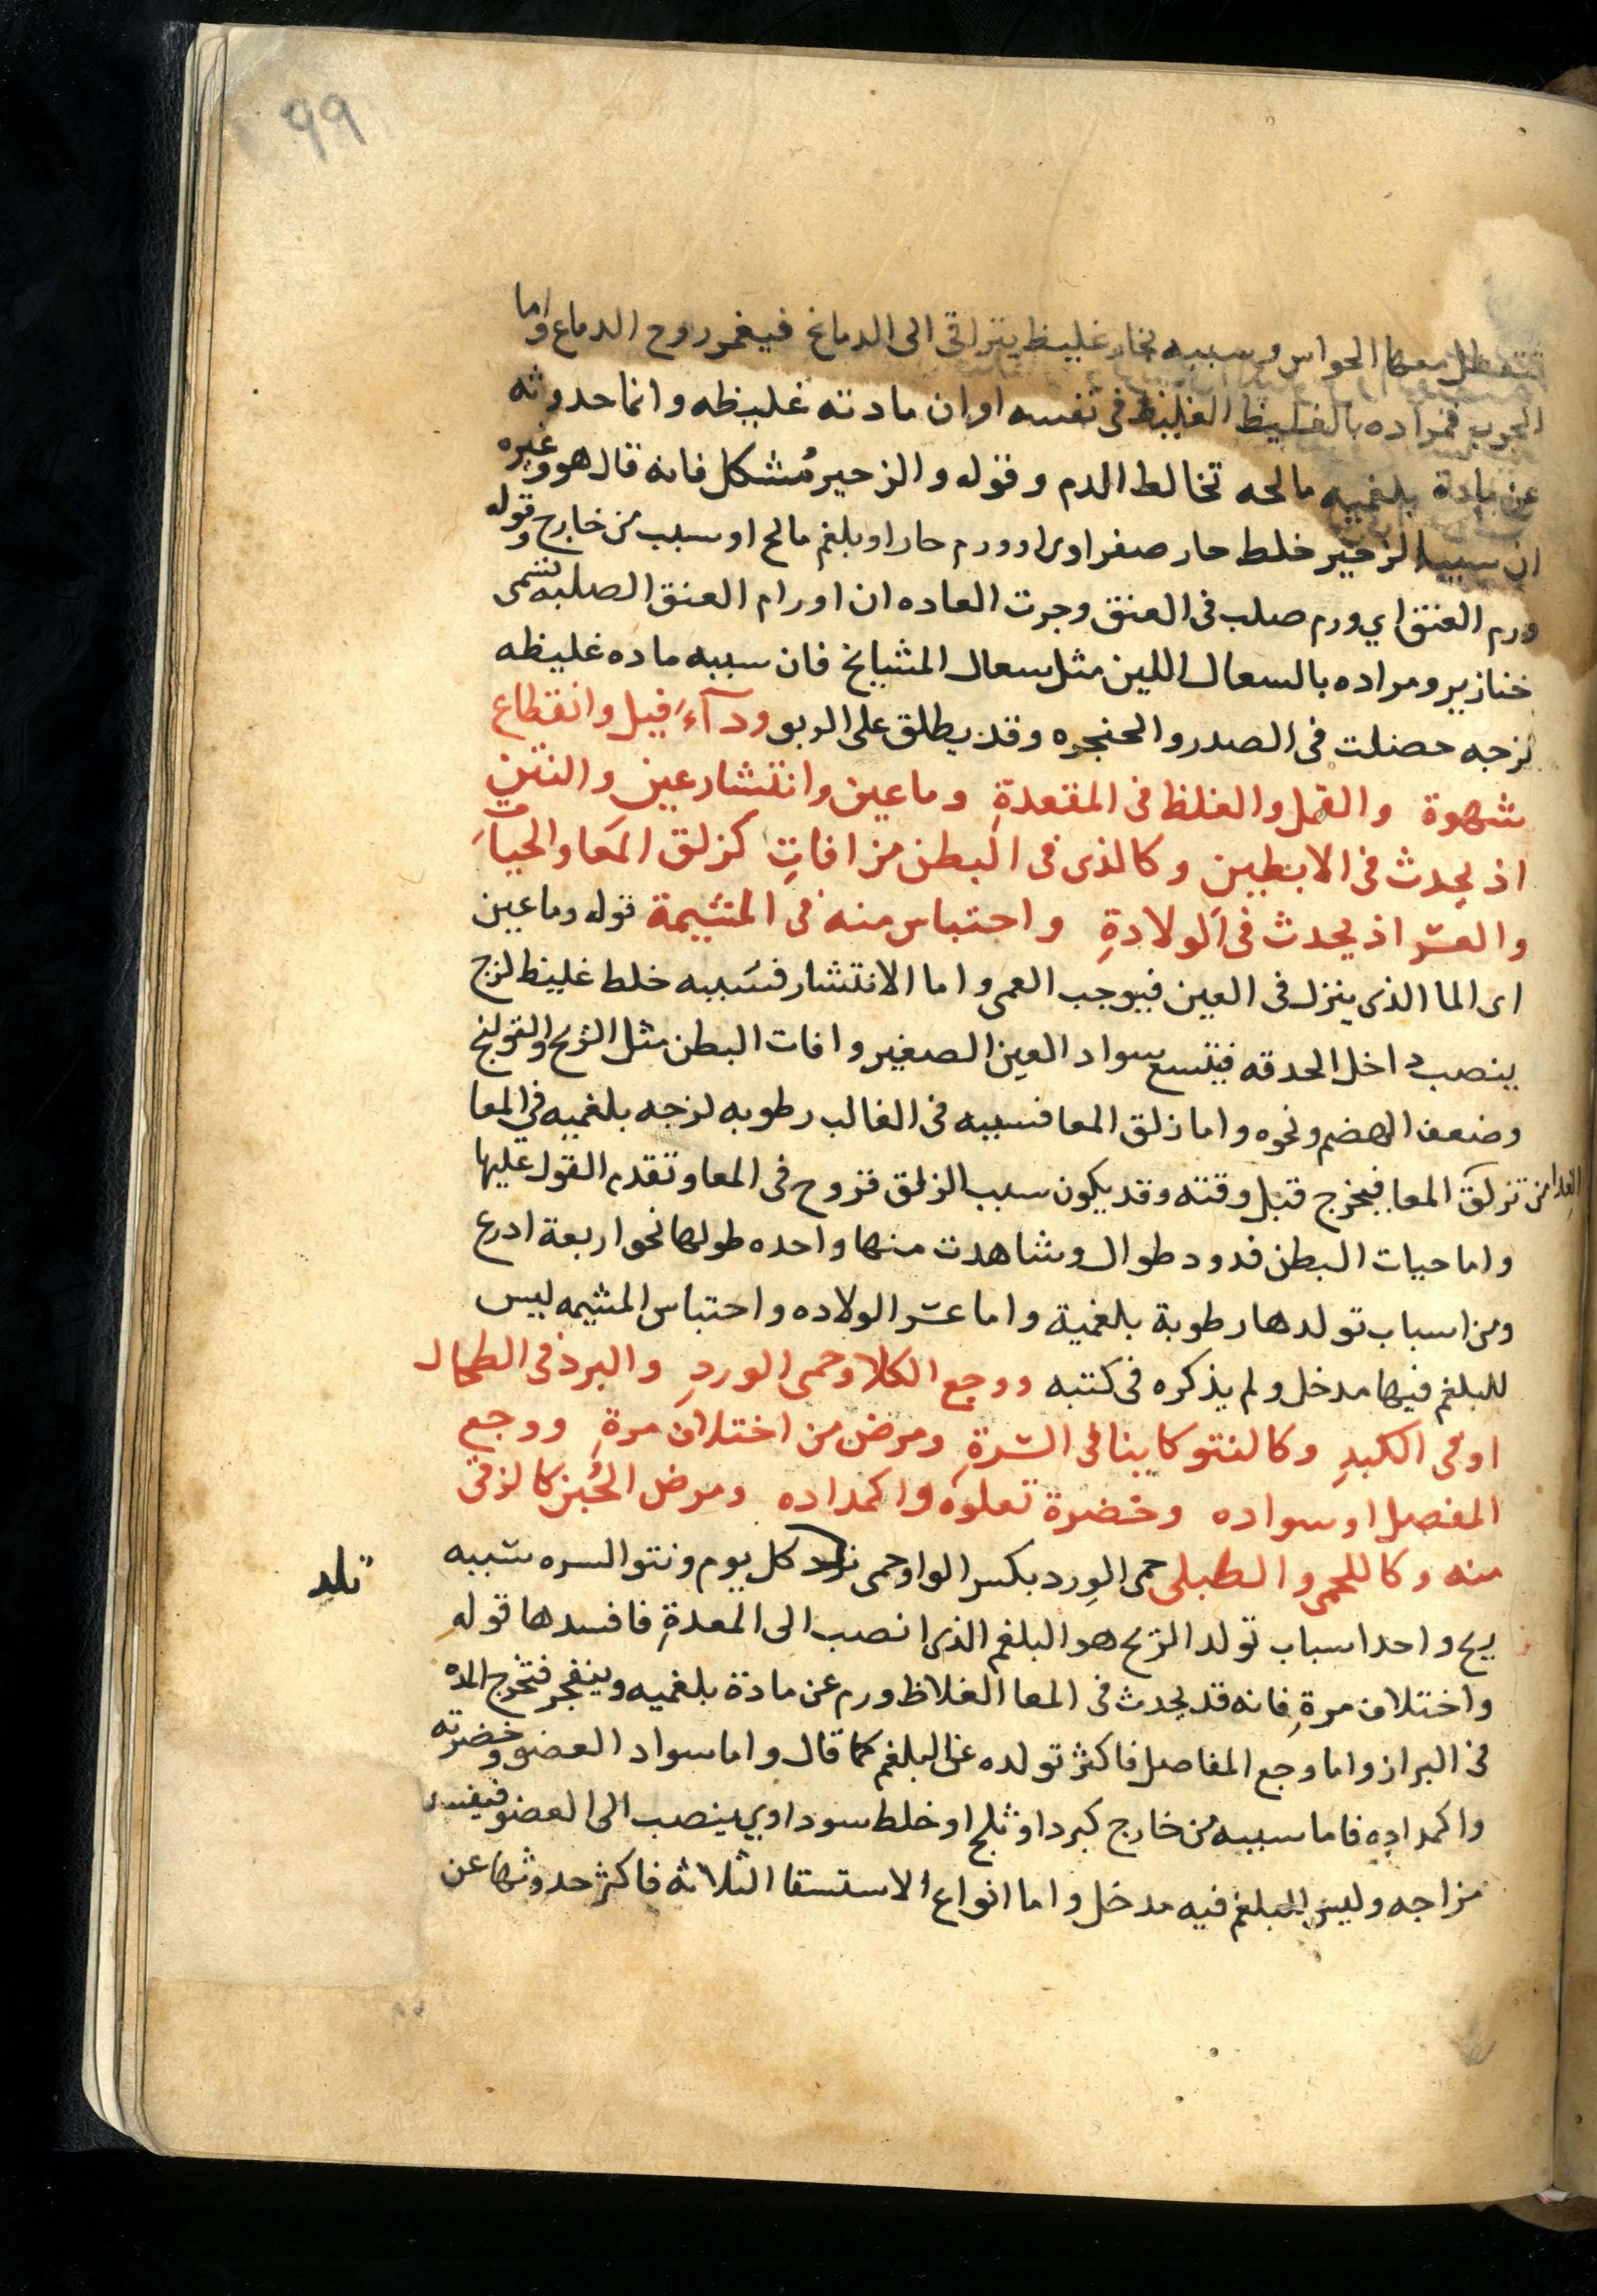 99
تتعطل معها الحواس وسببه بخار غليظ يتراقى الى الدماغ فيغمر روح الدماع واما
الجرب فمراده بالغليظ الغليظ فى نفسه او ان مادته غليظه وانما حدوثه
عن مادة بلغميه مالحه تخالط الدم وقوله والزحير مُشكل فانه قال هو وغيره
ان سبب الزحير خلط حار صفراوى او ورم حار او بلغم مالح او سبب من خارج وقوله
ورم العنق اي ورم صلب فى العنق وجرت العاده ان اورام العنق الصلبه تسمى
خنازير ومراده بالسعال اللين مثل سعال المشايخ فان سببه ماده غليظه
لزجه حصلت فى الصدر والحنجره وقد يطلق على الربو ودآء فيل وانقطاع
شهوة والقمل والغلظ فى المقعدةِ وماعين وانتشار عين والنتن
اذ يحدث فى الابطين وكالذى فى البطن من افاتِ كزلق المَعا والحياتِ
والعسّر اذ يحدث فى الولادةِ واحتباس منه فى المشيمة قوله وماعين
اى الما الذى ينزل فى العين فيوجب العمى واما الانتشار فسَببه خلط غليظ لزج
ينصب داخل الحدقه فيتسع سواد العين الصغير وافات البطن مثل الريح والقولنج
وضعف الهضم ونحوه واما زلق المعا فسببه فى الغالب رطوبه لزجه بلغميه فى المعا
الغدا من تزلق المعا فيخرج قبل وقته وقد يكون سبب الزلق قروح فى المعا وتقدم القول عليها
واما حيات البطن فدود طوال وشاهدت منها واحده طولها نحو اربعة ادرع
ومن اسباب تولدها رطوبة بلغمية واما عسّر الولاده واحتباس المشيمه ليس
للبلغم فيها مدخل ولم يذكره فى كتبه ووجع الكلا وحمى الوردِ والبرد فى الطحال
او فى الكبدِ وكالنتو كاينا فى السّرةِ ومرض من اختلاف مرةِ ووجع
المفصل او سواده وخضرة تعلوه واكمداده ومرض الحُبن كالزقى
منه وكاللحمى والطبلى حمى الوِرد بكسر الواو حمى ترد كل يوم ونتو السره سَببه
تلد
ريح واحد اسباب تولد الريح هو البلغم الذى انصب الى المعدةِ فافسدها قوله
واختلاف مرةِ فانه قد يحدث فى المعا الغلاظ ورم عن مادة بلغميه وينفجر فتخرج المده
فى البراز واما وجع المفاصل فاكثر تولده عن البلغم كما قال واما سواد العضو وخضرته
واكمداده فاما سببه من خارج كبرد او ثلج او خلط سوداوي ينصب الى العضو فيفسد
مزاجه وليس للبلغم فيه مدخل واما انواع الاستسقا الثلاثه فاكثر حدوثها عن